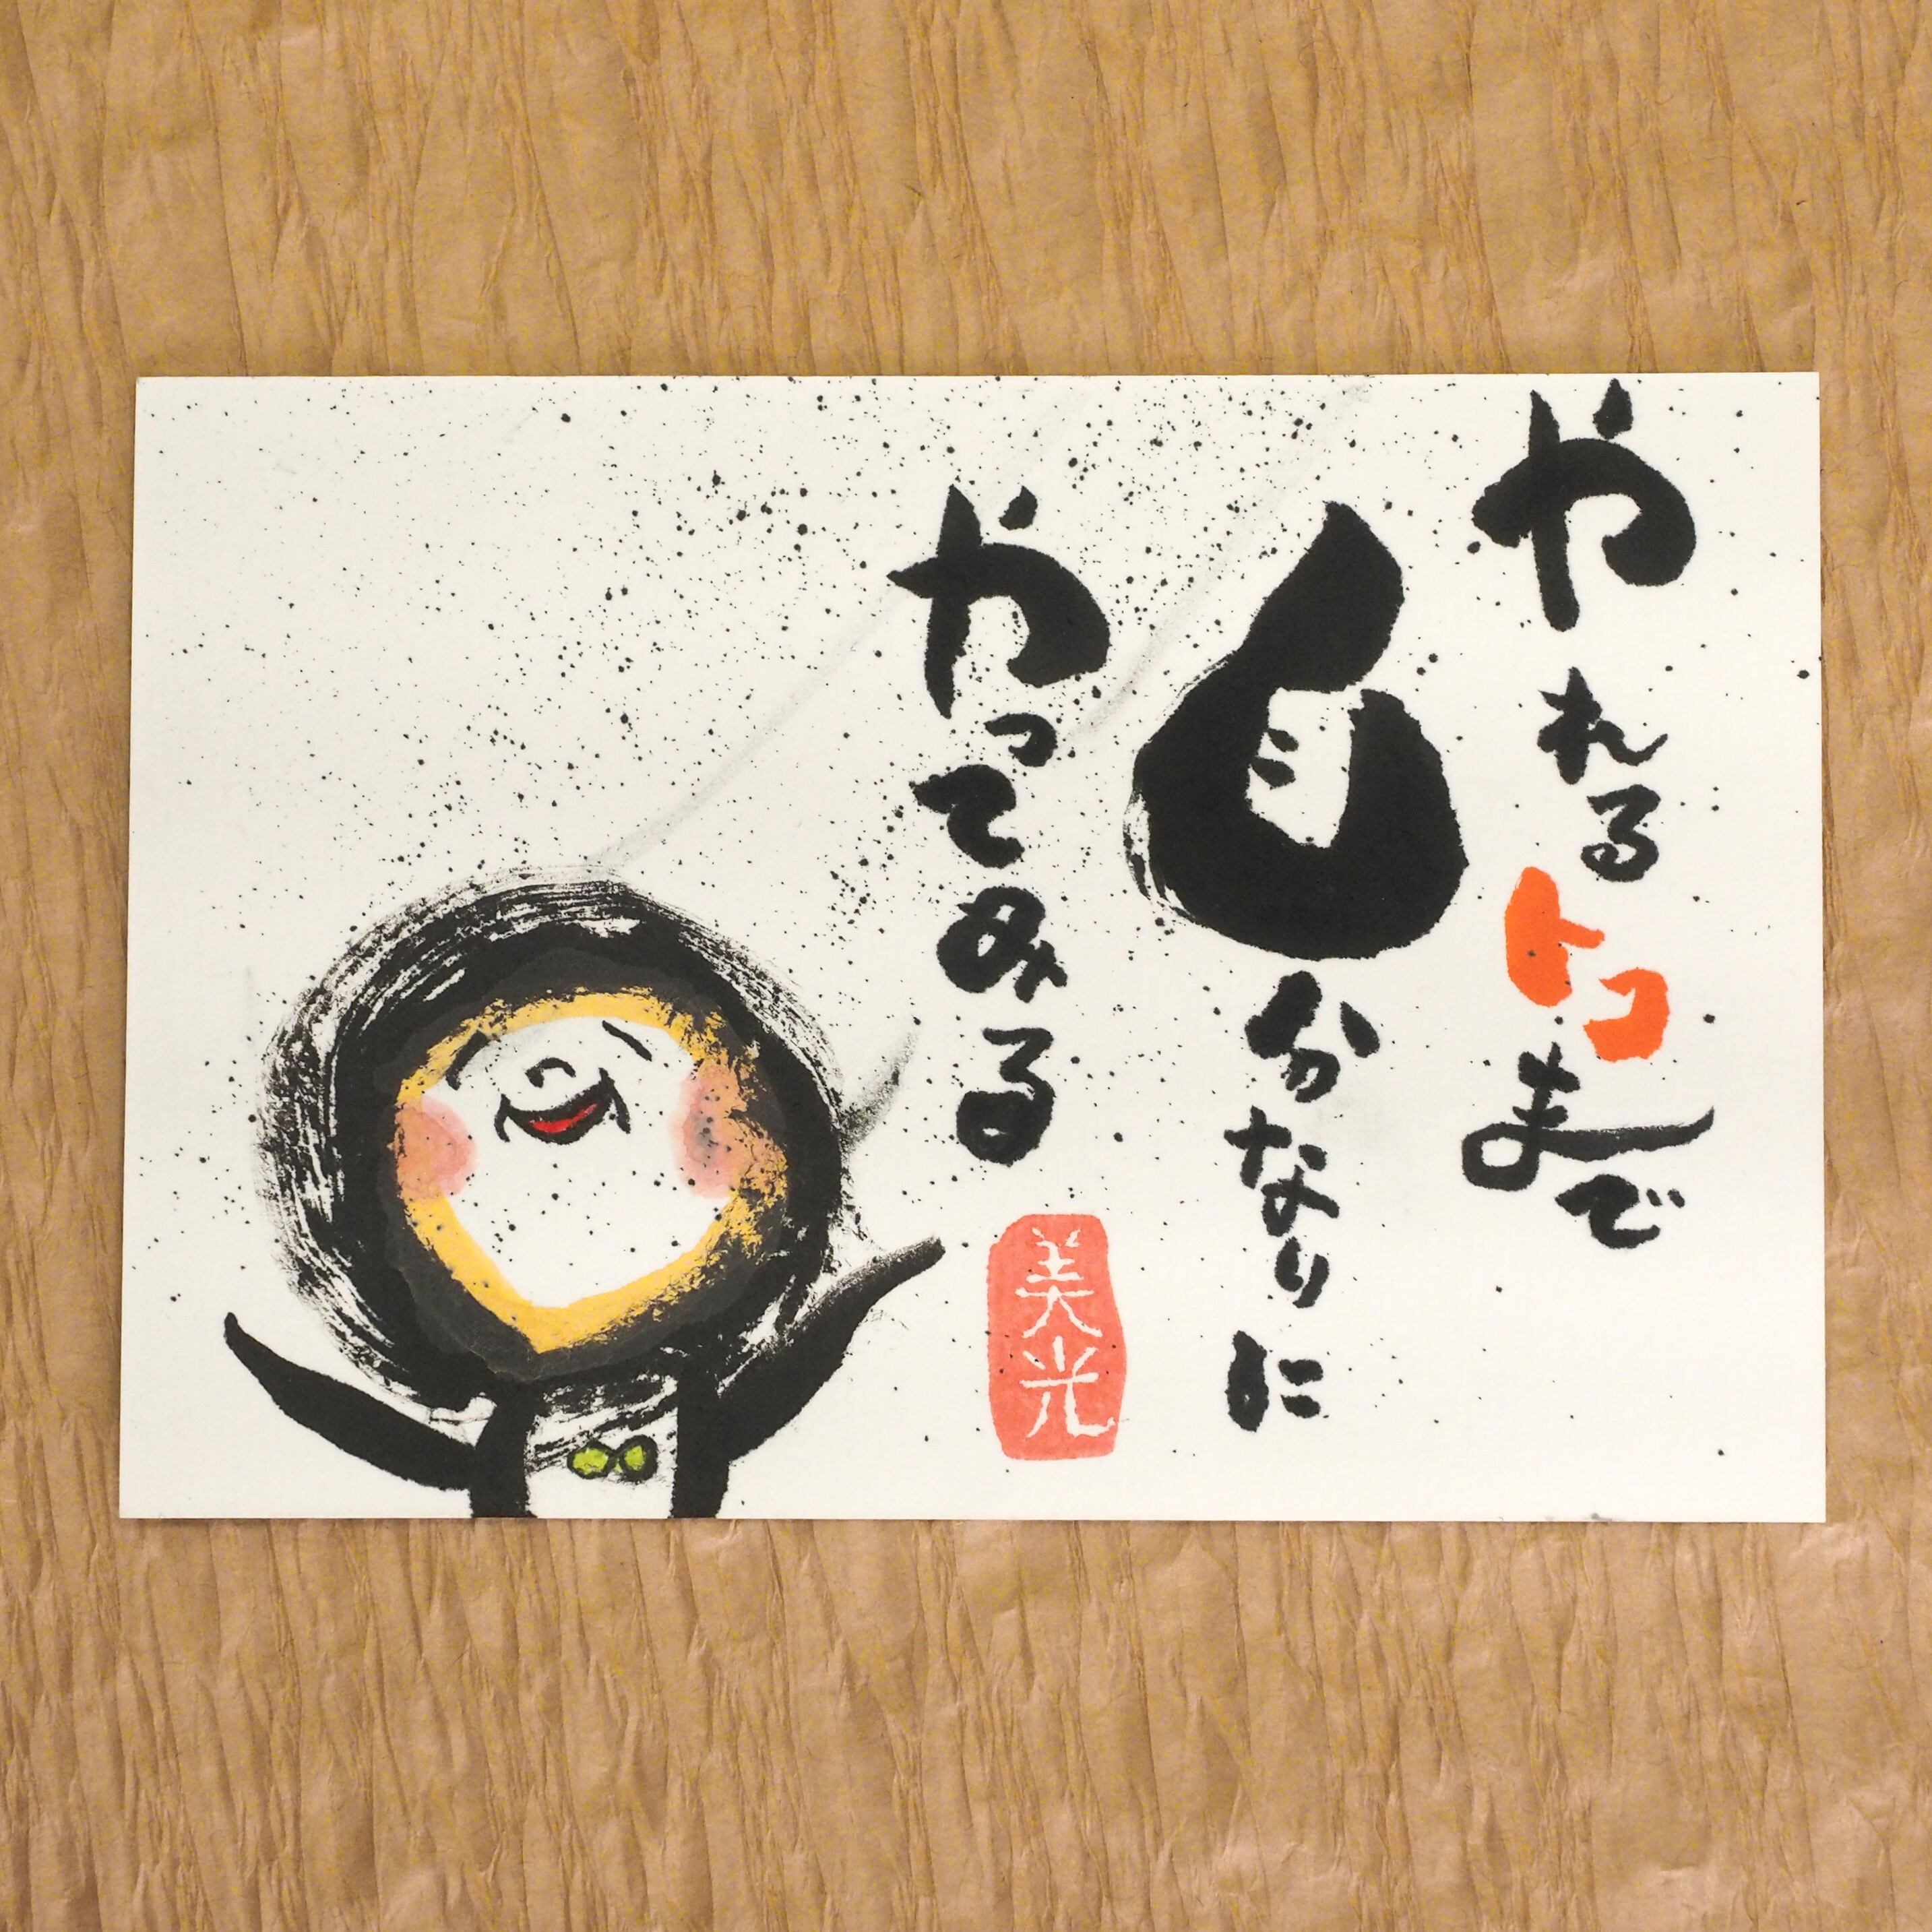 やれるトコまで
自分なりに
やってみる
美光